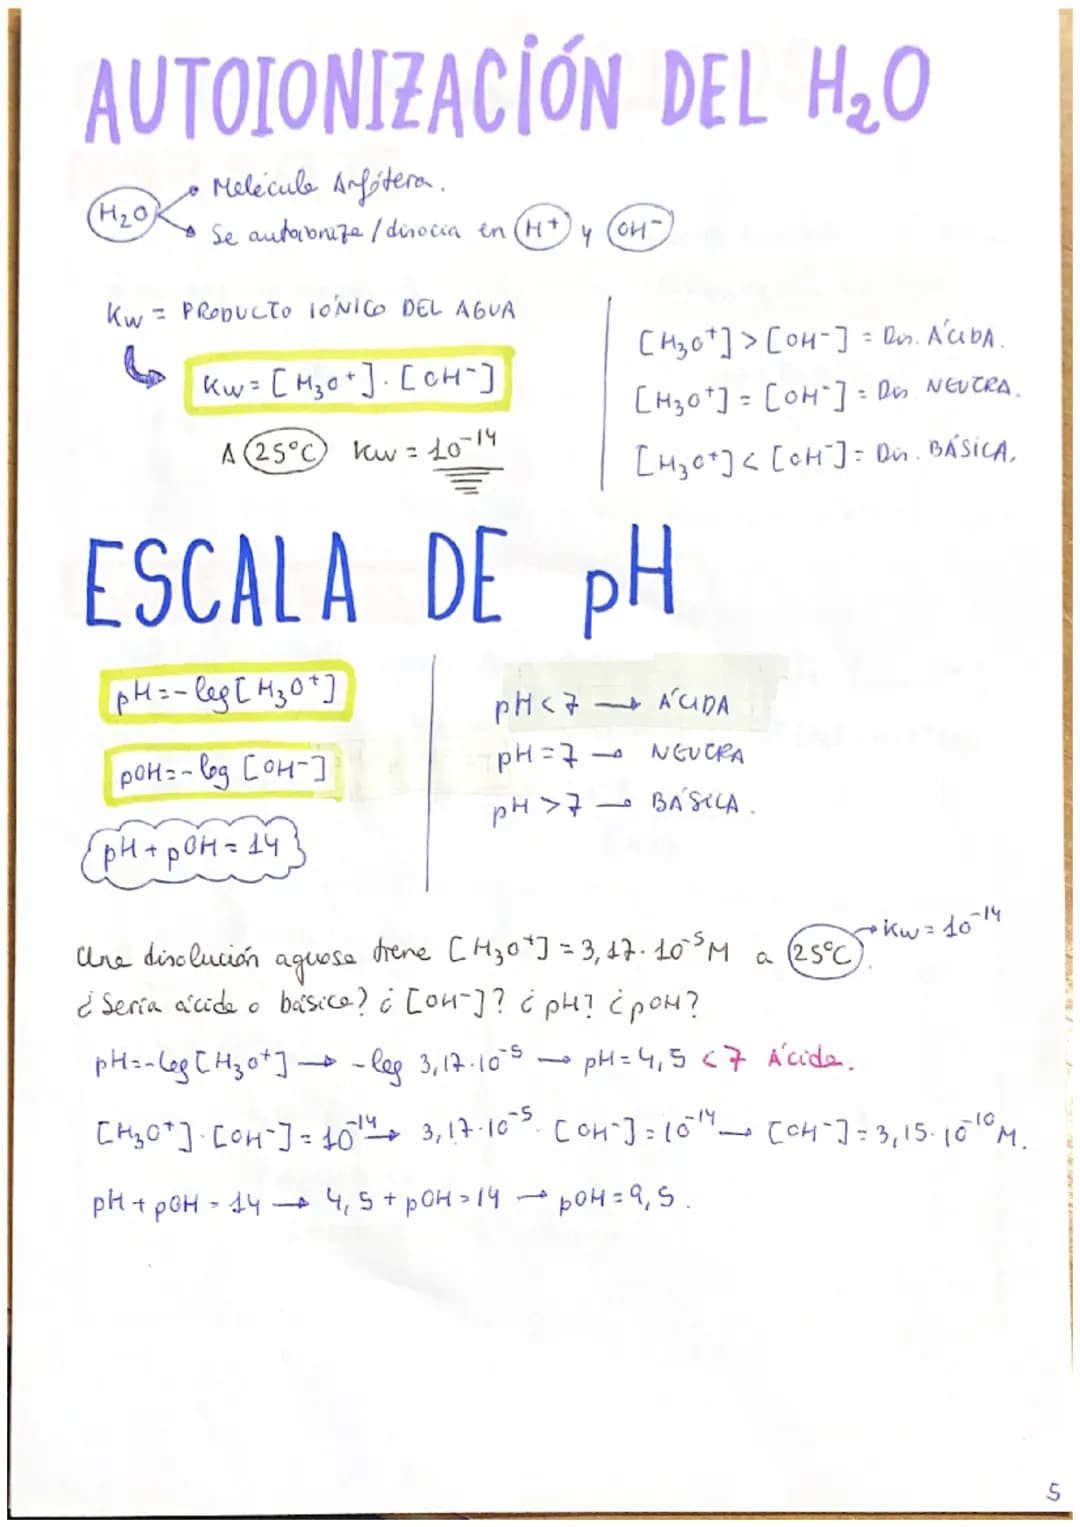 AUTOIONIZACIÓN DEL H₂O
H₂O
Molécula Anfótera.
Se autoioniza / disocia en H⁺ y OH⁻
Kw = PRODUCTO IÓNICO DEL AGUA
Kw = [H₃O⁺] · [OH⁻]
A 25ºC Kw = 10⁻¹⁴
[H₃O⁺] > [OH⁻] = Dis. ÁCIDA.
[H₃O⁺] = [OH⁻] = Dis NEUTRA.
[H₃O⁺] < [OH⁻] = Dis. BÁSICA.
ESCALA DE pH
pH = - log [H₃O⁺]
pOH = - log [OH⁻]
pH + pOH = 14
pH < 7 → ÁCIDA
pH = 7 → NEUTRA
pH > 7 → BÁSICA.
Una disolución aguosa tiene [H₃O⁺] = 3,17·10⁻⁵M a 25ºC. → Kw = 10⁻¹⁴
¿Sería ácida o básica? ¿[OH⁻]? ¿pH? ¿pOH?
pH = - log [H₃O⁺] → - log 3,17·10⁻⁵ → pH = 4,5 < 7 Ácida.
[H₃O⁺]·[OH⁻] = 10⁻¹⁴ → 3,17·10⁻⁵·[OH⁻] = 10⁻¹⁴ → [OH⁻] = 3,15·10⁻¹⁰M.
pH + pOH = 14 → 4,5 + pOH = 14 → pOH = 9,5.
5